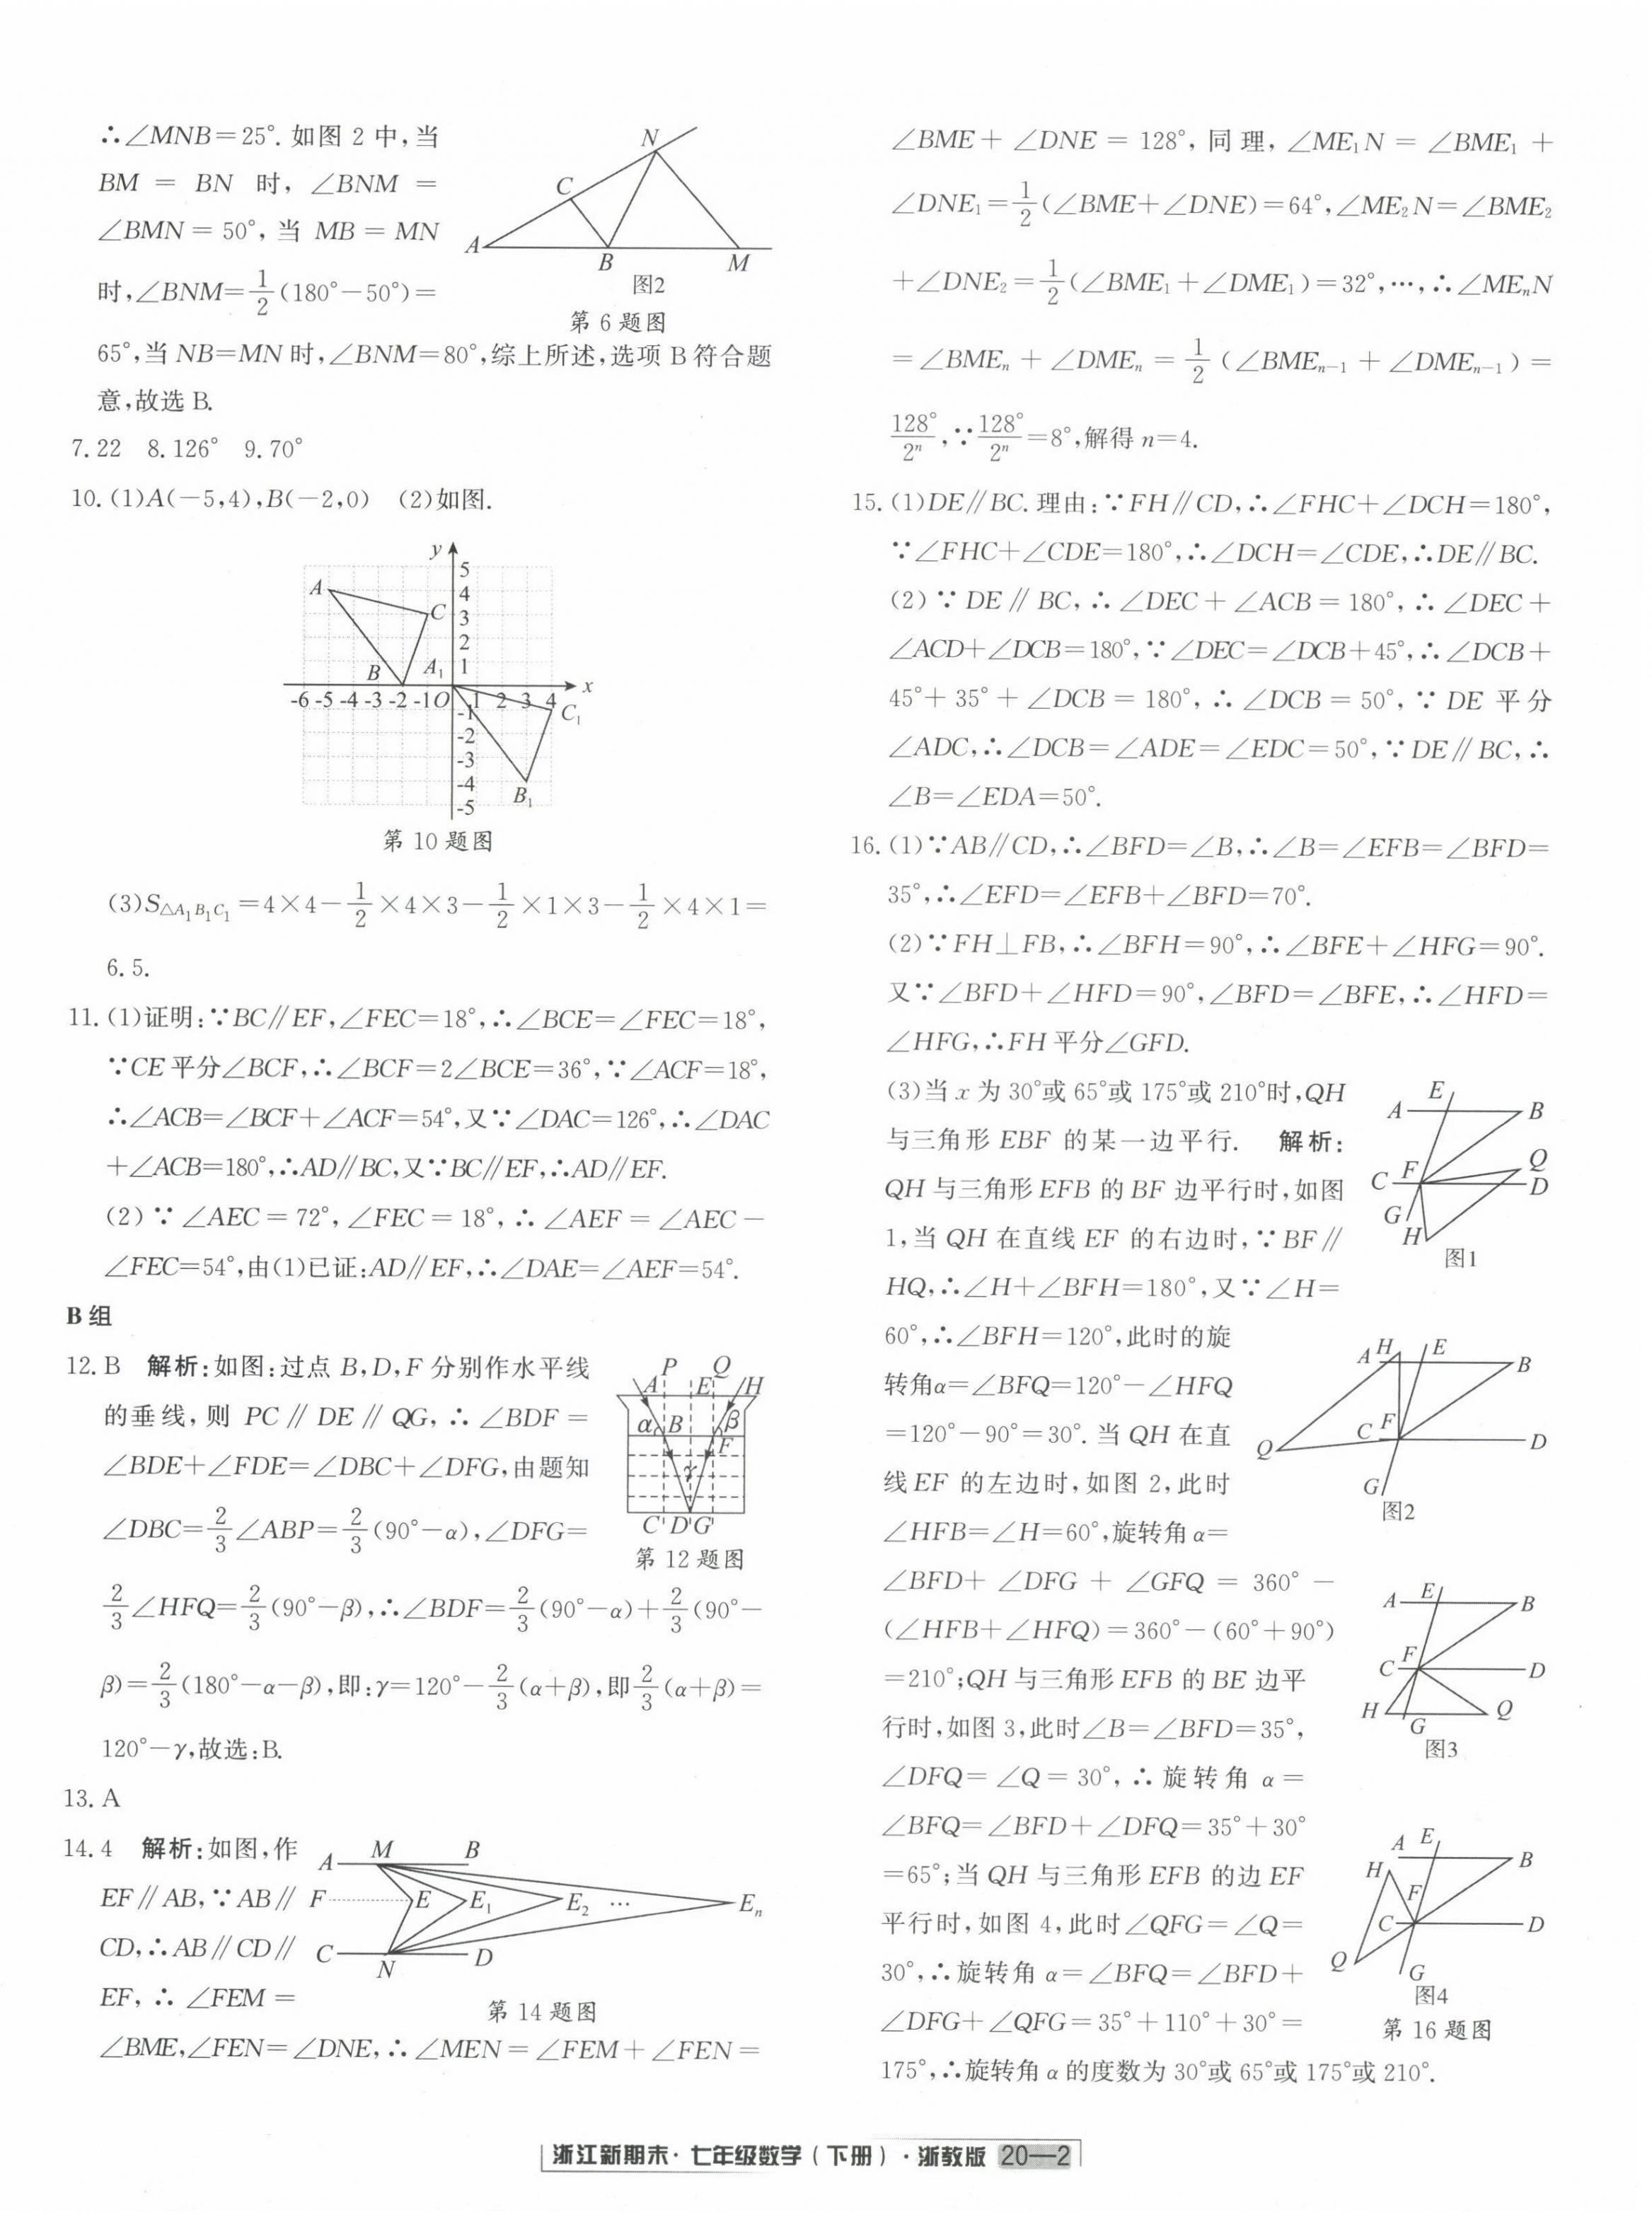 ∴∠MNB=25°. 如图 2 中,当
BM = BN 时, ∠BNM =
∠BMN = 50°, 当 MB = MN
时,∠BNM=1/2(180°-50°)=
N
C
A
B
M
图2
第 6 题图
65°,当 NB=MN 时,∠BNM=80°,综上所述,选项 B 符合题
意,故选 B.
7.22 8.126° 9.70°
10. (1)A(-5,4),B(-2,0) (2)如图.
y
5
A
4
C
3
2
B A₁ 1
-6 -5 -4 -3 -2 -1 O 1 2 3 4 x
-1 C₁
-2
-3
-4
B₁
-5
第 10 题图
(3)S△A₁B₁C₁ =4×4-1/2×4×3-1/2×1×3-1/2×4×1=
6.5.
11. (1)证明:∵BC∥EF,∠FEC=18°,∴∠BCE=∠FEC=18°,
∵CE 平分∠BCF,∴∠BCF=2∠BCE=36°,∵∠ACF=18°,
∴∠ACB=∠BCF+∠ACF=54°,又∵∠DAC=126°,∴∠DAC
+∠ACB=180°,∴AD∥BC,又∵BC∥EF,∴AD∥EF.
(2) ∵ ∠AEC = 72°, ∠FEC = 18°, ∴ ∠AEF = ∠AEC -
∠FEC=54°,由(1)已证:AD∥EF,∴∠DAE=∠AEF=54°.
B 组
12. B 解析:如图:过点 B,D,F 分别作水平线
的垂线, 则 PC ∥ DE ∥ QG, ∴ ∠BDF =
∠BDE+∠FDE=∠DBC+∠DFG,由题知
∠DBC=2/3∠ABP=2/3(90°-α),∠DFG=
P Q
A E H
α B β
F
γ
C D G
第 12 题图
2/3∠HFQ=2/3(90°-β),∴∠BDF=2/3(90°-α)+2/3(90°-
β)=2/3(180°-α-β),即:γ=120°-2/3(α+β),即2/3(α+β)=
120°-γ,故选:B.
13. A
14. 4 解析:如图,作
EF∥AB,∵AB∥
CD,∴AB∥CD∥
EF, ∴ ∠FEM =
A M B
F E E₁ E₂ … Eₙ
C N D
第 14 题图
∠BME,∠FEN=∠DNE,∴∠MEN=∠FEM+∠FEN=
∠BME+ ∠DNE = 128°, 同理, ∠ME₁N = ∠BME₁ +
∠DNE₁=1/2(∠BME+∠DNE)=64°,∠ME₂N=∠BME₂
+∠DNE₂=1/2(∠BME₁+∠DME₁)=32°,…,∴∠MEₙN
=∠BMEₙ + ∠DMEₙ = 1/2 (∠BMEₙ₋₁ + ∠DMEₙ₋₁) =
128°/2ⁿ,∵128°/2ⁿ=8°,解得 n=4.
15. (1)DE∥BC. 理由:∵FH∥CD,∴∠FHC+∠DCH=180°,
∵∠FHC+∠CDE=180°,∴∠DCH=∠CDE,∴DE∥BC.
(2) ∵ DE ∥ BC, ∴ ∠DEC + ∠ACB = 180°, ∴ ∠DEC +
∠ACD+∠DCB=180°,∵∠DEC=∠DCB+45°,∴∠DCB+
45°+ 35° + ∠DCB = 180°, ∴ ∠DCB = 50°, ∵ DE 平分
∠ADC,∴∠DCB=∠ADE=∠EDC=50°,∵DE∥BC,∴
∠B=∠EDA=50°.
16. (1)∵AB∥CD,∴∠BFD=∠B,∴∠B=∠EFB=∠BFD=
35°,∴∠EFD=∠EFB+∠BFD=70°.
(2)∵FH⊥FB,∴∠BFH=90°,∴∠BFE+∠HFG=90°.
又∵∠BFD+∠HFD=90°,∠BFD=∠BFE,∴∠HFD=
∠HFG,∴FH 平分∠GFD.
(3)当 x 为 30°或 65°或 175°或 210°时,QH
与三角形 EBF 的某一边平行. 解析:
QH 与三角形 EFB 的 BF 边平行时,如图
1,当 QH 在直线 EF 的右边时,∵BF∥
HQ,∴∠H+∠BFH=180°,又∵∠H=
60°,∴∠BFH=120°,此时的旋
转角α=∠BFQ=120°-∠HFQ
=120°-90°=30°. 当 QH 在直
线 EF 的左边时,如图 2,此时
∠HFB=∠H=60°,旋转角 α=
∠BFD+ ∠DFG + ∠GFQ = 360° -
(∠HFB+∠HFQ)=360°-(60°+90°)
=210°;QH 与三角形 EFB 的 BE 边平
行时,如图 3,此时∠B=∠BFD=35°,
∠DFQ= ∠Q = 30°, ∴ 旋转角 α =
∠BFQ=∠BFD+∠DFQ=35°+30°
=65°;当 QH 与三角形 EFB 的边 EF
平行时,如图 4,此时∠QFG=∠Q=
30°,∴旋转角 α=∠BFQ=∠BFD+
∠DFG+∠QFG=35°+110°+30°=
175°,∴旋转角 α 的度数为 30°或 65°或 175°或 210°.
E
A B
F Q
C D
G
H
图1
A H E B
C F D
Q
G
图2
A E B
F
C D
H G Q
图3
A E B
H
F
C D
Q
G
图4
第 16 题图
浙江新期末·七年级数学(下册)·浙教版 20—2